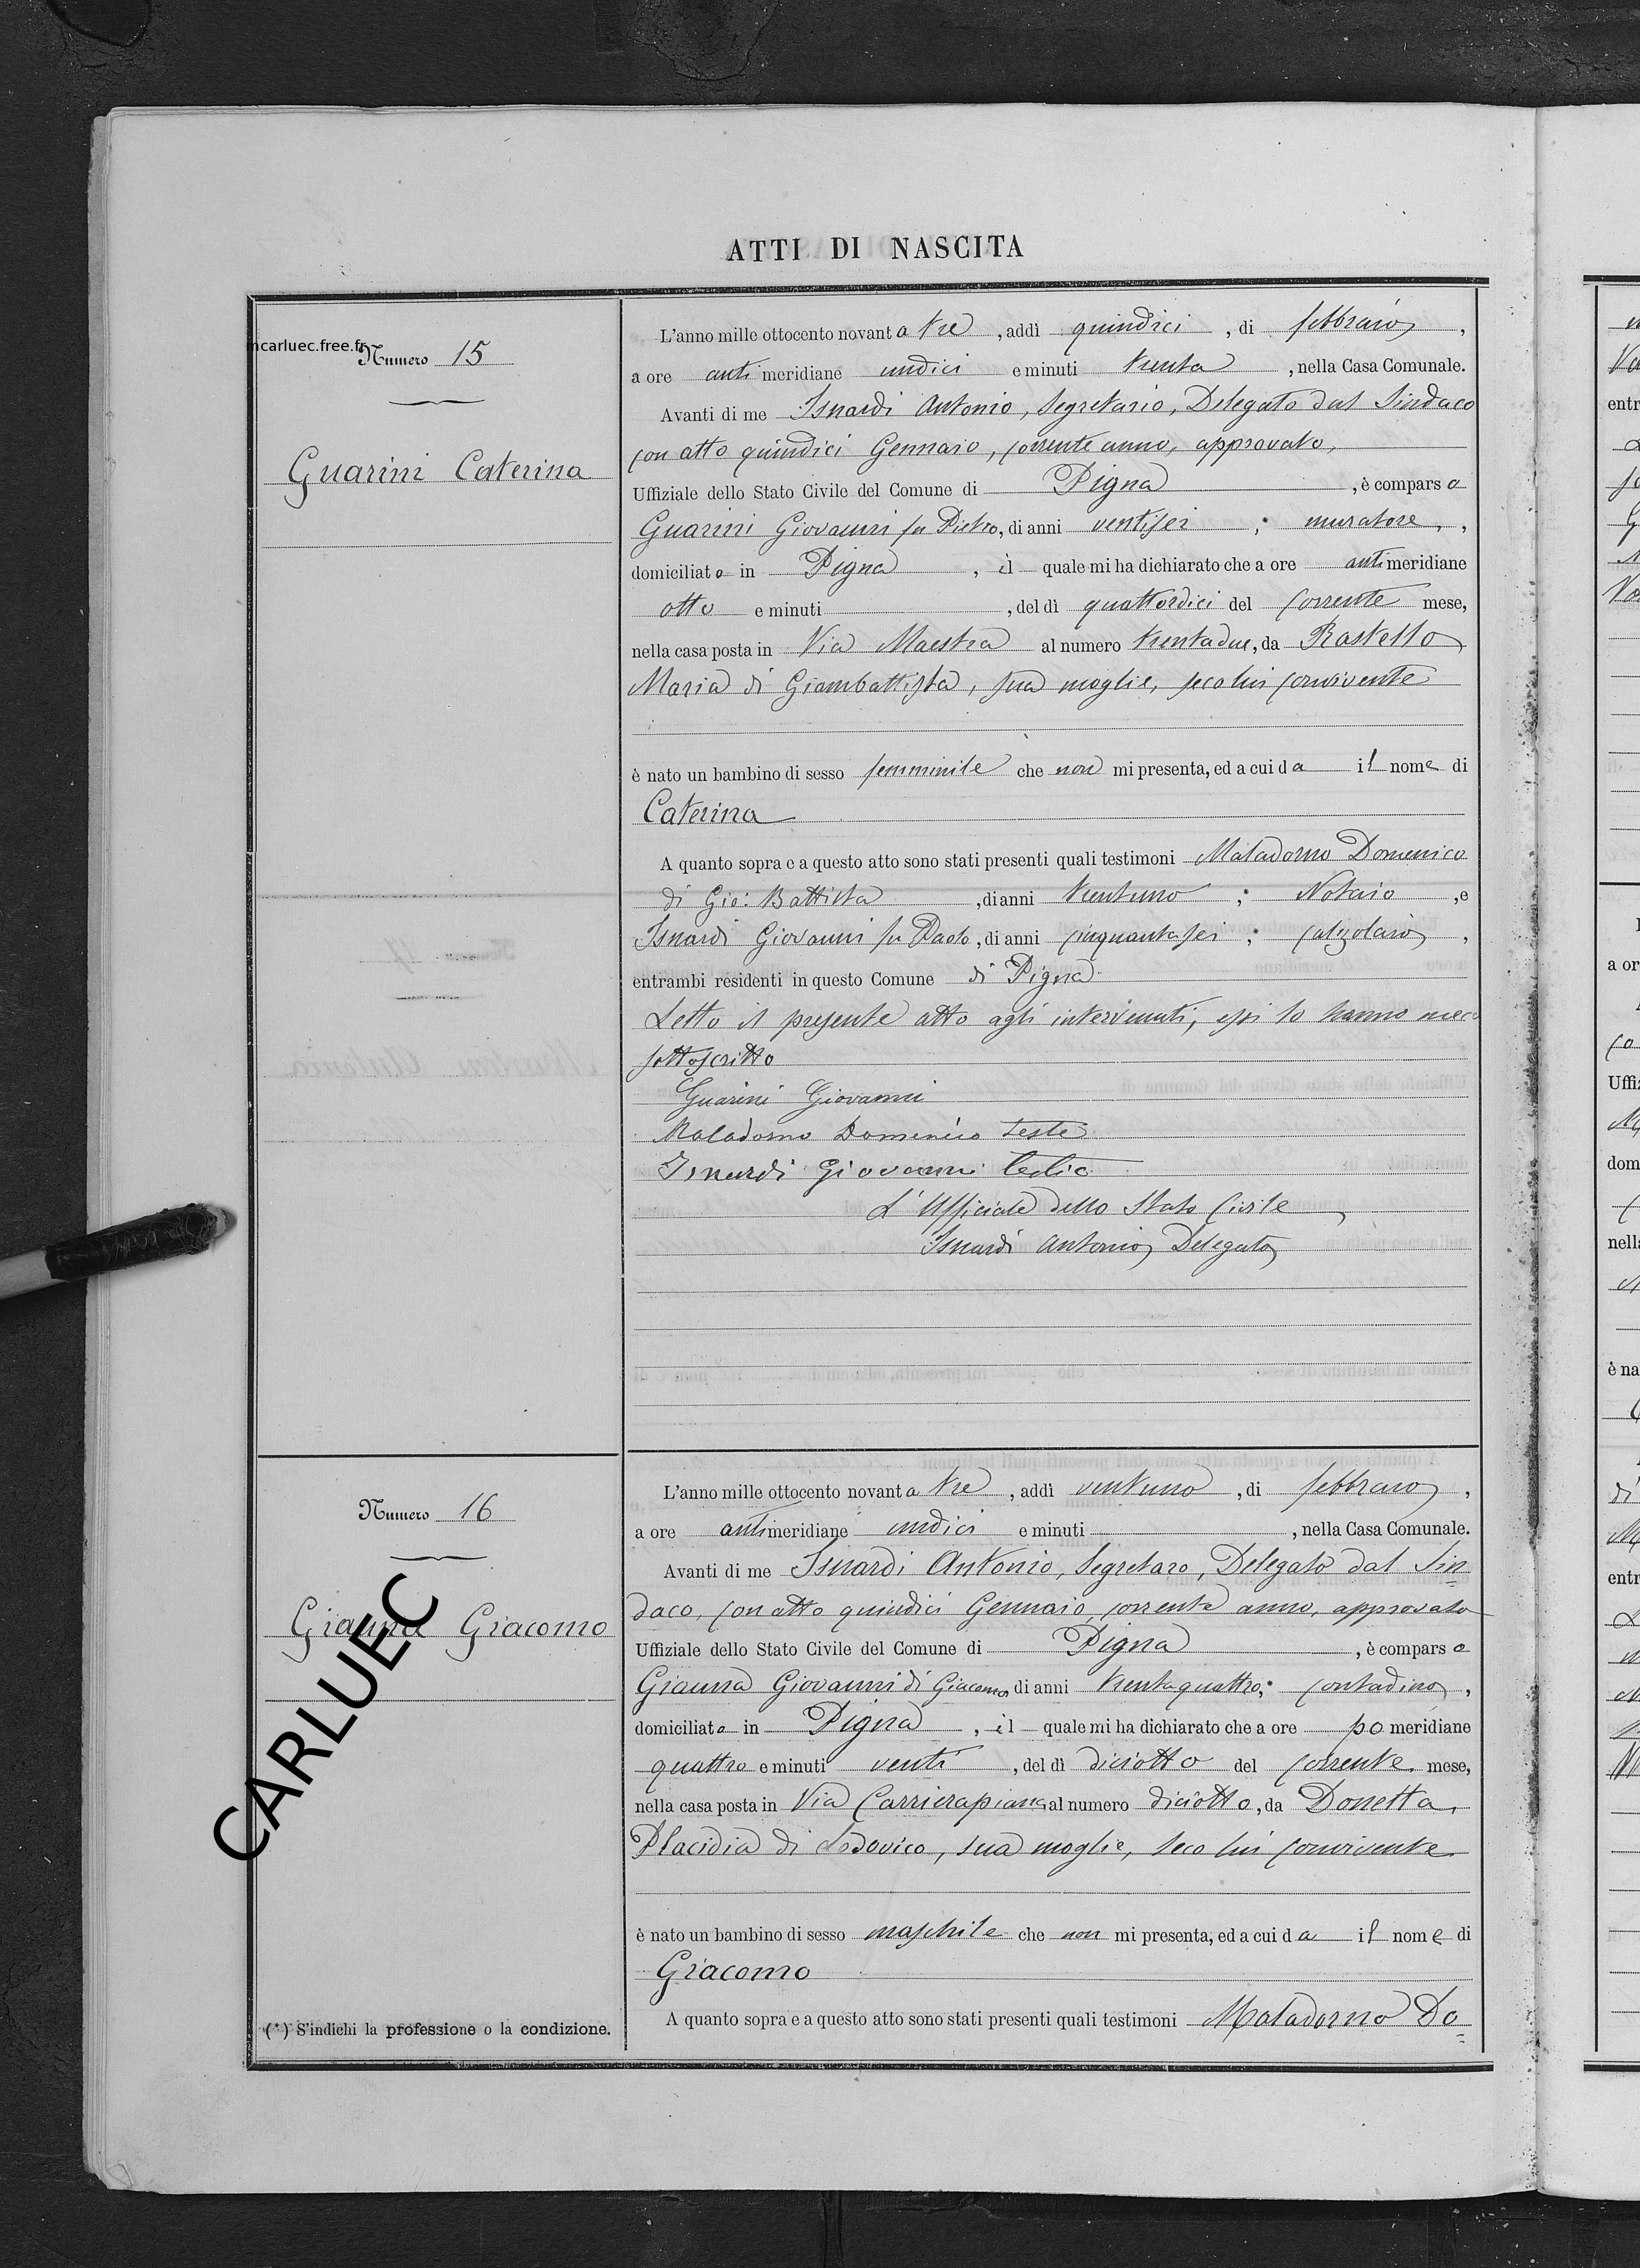 ATTI DI NASCITA
mcarluec.free.fr
Numero 15
Guarini Caterina
L'anno mille ottocento novanta tre, addì quindici, di febbraio,
a ore antimeridiane undici e minuti trenta, nella Casa Comunale.
Avanti di me Isnardi Antonio, Segretario, Delegato dal Sindaco
con atto quindici Gennaio, corrente anno, approvato,
Uffiziale dello Stato Civile del Comune di Pigna, è comparso
Guarini Giovanni fu Pietro, di anni ventisei; muratore,,
domiciliato in Pigna, il quale mi ha dichiarato che a ore antimeridiane
otto e minuti , del dì quattordici del corrente mese,
nella casa posta in Via Maestra al numero trentadue, da Rastello
Maria di Giambattista, sua moglie, seco lui convivente
è nato un bambino di sesso femminile che non mi presenta, ed a cui da il nome di
Caterina
A quanto sopra e a questo atto sono stati presenti quali testimoni Maladorno Domenico
di Gio: Battista, di anni trentuno; Notaio, e
Isnardi Giovanni fu Paolo, di anni cinquantasei; calzolaio,
entrambi residenti in questo Comune di Pigna.
Letto il presente atto agli intervenuti, essi lo hanno meco
sottoscritto
Guarini Giovanni
Maladorno Domenico teste
Isnardi Giovanni
L'Ufficiale dello Stato Civile
Isnardi Antonio Delegato
Numero 16
Gianna Giacomo
CARLUEC
L'anno mille ottocento novanta tre, addì ventuno, di febbraio,
a ore antimeridiane undici e minuti , nella Casa Comunale.
Avanti di me Isnardi Antonio, Segretaro, Delegato dal Sin=
daco, con atto quindici Gennaio, corrente anno, approvato
Uffiziale dello Stato Civile del Comune di Pigna, è comparso
Gianna Giovanni di Giacomo, di anni trentaquattro; contadino,
domiciliato in Pigna, il quale mi ha dichiarato che a ore pomeridiane
quattro e minuti venti, del dì diciotto del corrente mese,
nella casa posta in Via Carrierapiana al numero diciotto, da Donetta
Placidia di Lodovico, sua moglie, seco lui convivente
è nato un bambino di sesso maschile che non mi presenta, ed a cui da il nome di
Giacomo
A quanto sopra e a questo atto sono stati presenti quali testimoni Maladorno Do=
(*) S'indichi la professione o la condizione.